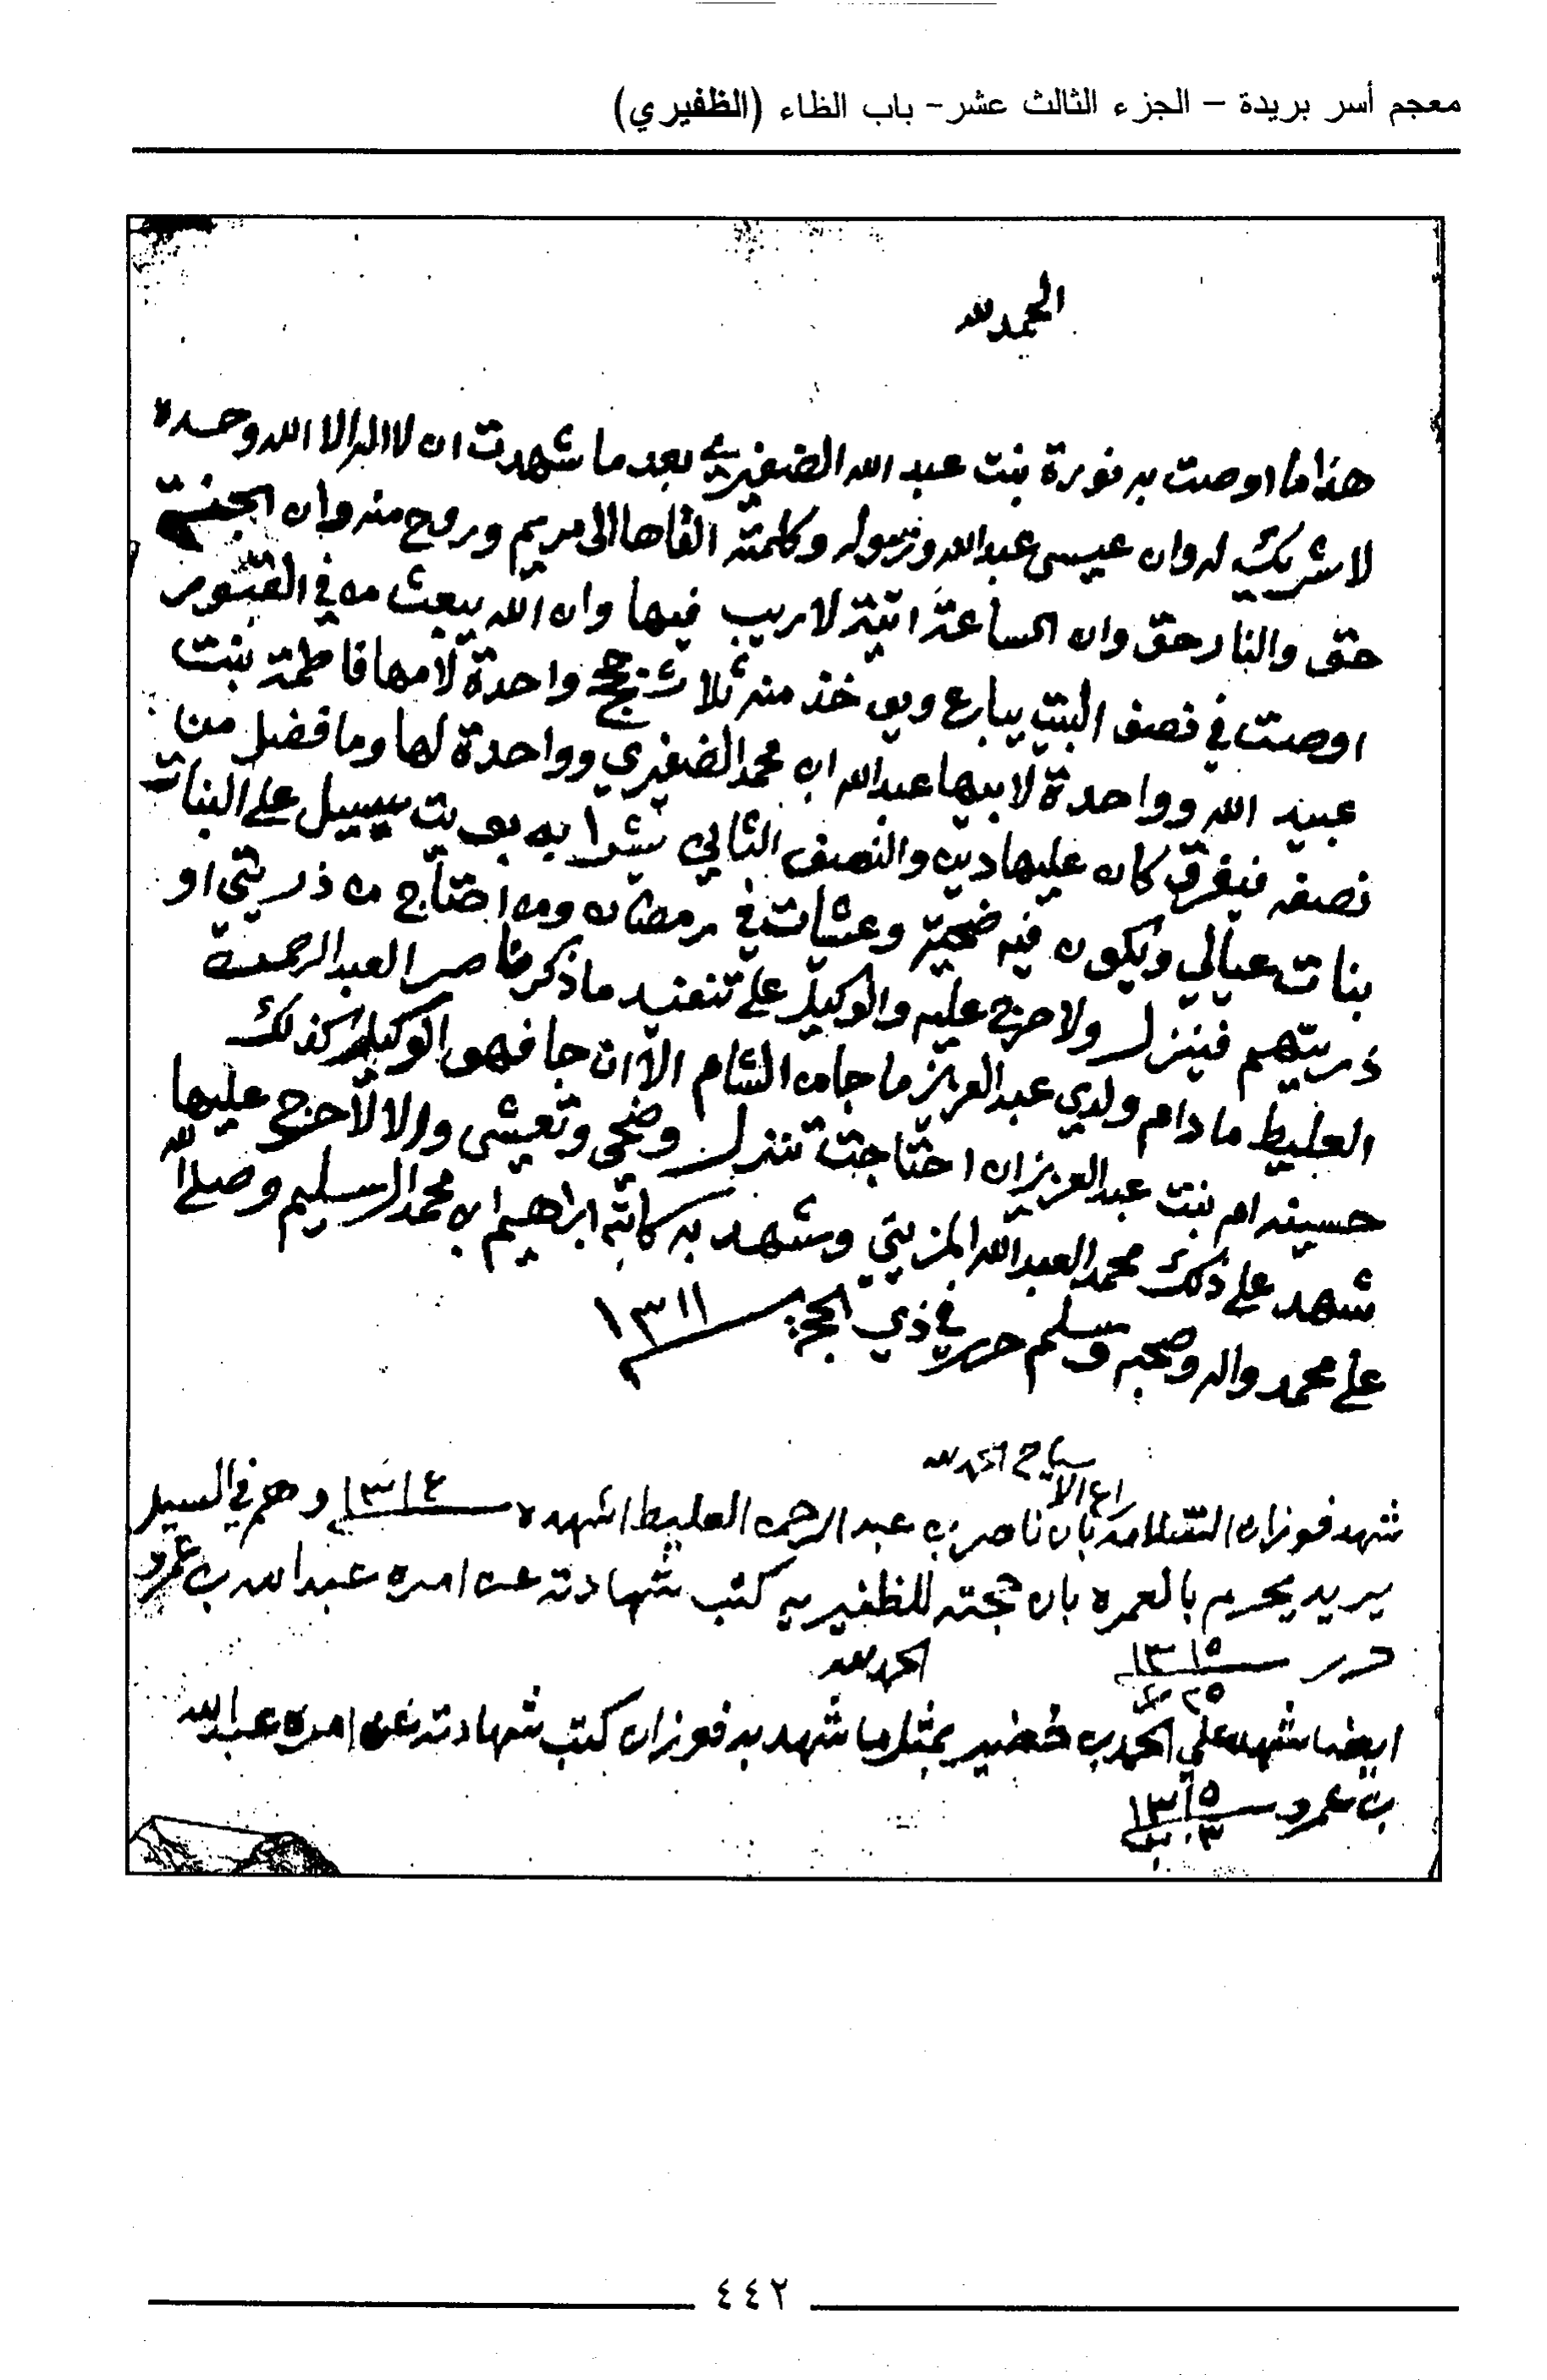 معجم أسر بريدة – الجزء الثالث عشر – باب الظاء (الظفيري)
الحمد لله
هذا ما اوصت به نورة بنت عبد الله الضفيري بعد ما شهدت ان لا اله الا الله وحده
لا شريك له وان عيسى عبد الله ورسوله وكلمته القاها الى مريم وروح منه وان الجنة
حق والنار حق وان الساعة اتية لا ريب فيها وان الله يبعث من في القبور
اوصت في نصف البيت يباع ويوخذ منه ثلاث حجج واحدة لأمها فاطمة بنت
عبيد الله وواحدة لابيها عبد الله ابن محمد الضفيري وواحدة لها وما فضل من
نصفه فيفرق كان عليها دين والنصف الثاني يشرا به بويت سبيل على البنات
بنات عيالي ويكون فيه ضحية وعشيات في رمضان ومن احتاج من ذريتي او
ذريتهم فينزل ولا حرج عليه والوكيل على تنفيد ما ذكر ناصر العبد الرحمن
العليط ما دام ولدي عبد العزيز ما جا من الشام الا ان جا فهو الوكيل كذلك
حسينه ام بنت عبد العزيز ان احتاجت تنزل وضحي وتعيشى والا لا حرج عليها
شهد على ذلك محمد العبد الله المزيني وشهد به كاتبه ابراهيم ابن محمد السليم وصلى الله
على محمد واله وصحبه وسلم حرر في ذي الحجة ١٣١١
الحمد لله
شهد فوزان بان ناصر بن عبد الرحمن العليط اشهده ١٣١٤ وهم في السيل
يريد يحرم بالعمره بان حجته للظفيريه كتب شهادته عن امره عبد الله بن عمرو
حرر ١٣١٥
الحمد لله
ايضا شهد علي الحمد بن خضير بمثل ما شهد به فوزان كتب شهادته عن امره عبد الله
بن عمرو ١٣١٥
٤٤٢